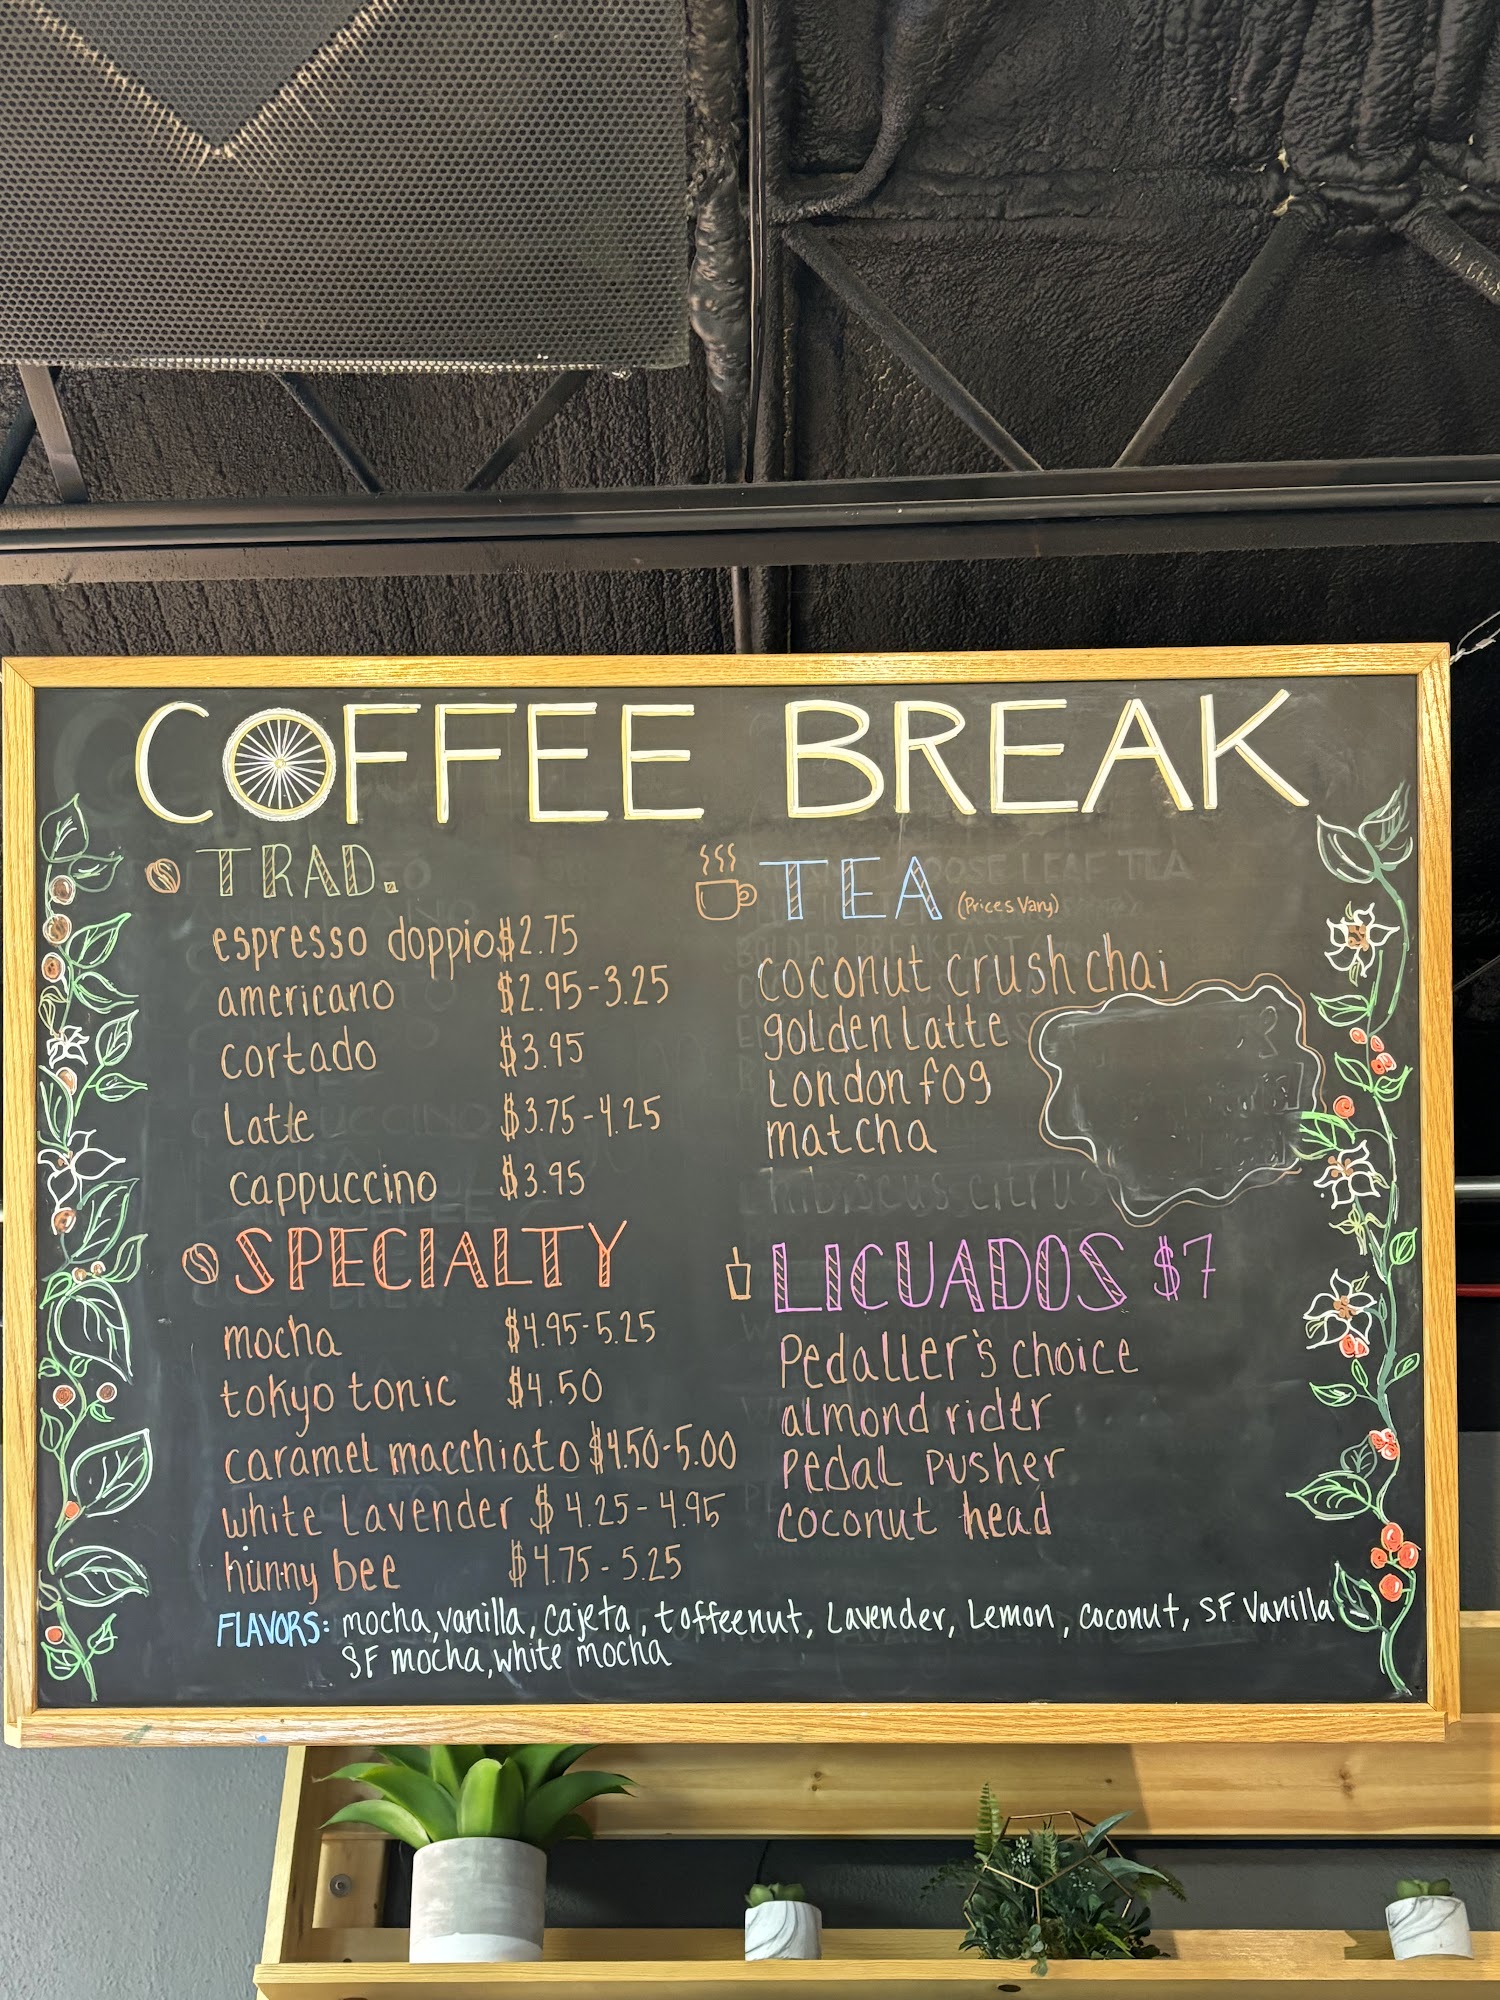 COFFEE BREAK
TRAD.
espresso doppio $2.75
americano $2.95-3.25
cortado $3.95
Latte $3.75-4.25
cappuccino $3.95
SPECIALTY
mocha $4.95-5.25
tokyo tonic $4.50
caramel macchiato $4.50-5.00
white Lavender $4.25-4.95
hunny bee $4.75-5.25
TEA (Prices Vary)
coconut crush chai
golden Latte
London fog
matcha
hibiscus citrus
LICUADOS $7
Pedaller's choice
almond rider
Pedal Pusher
coconut head
FLAVORS: mocha, vanilla, cajeta, toffeenut, Lavender, Lemon, coconut, SF Vanilla
SF mocha, white mocha